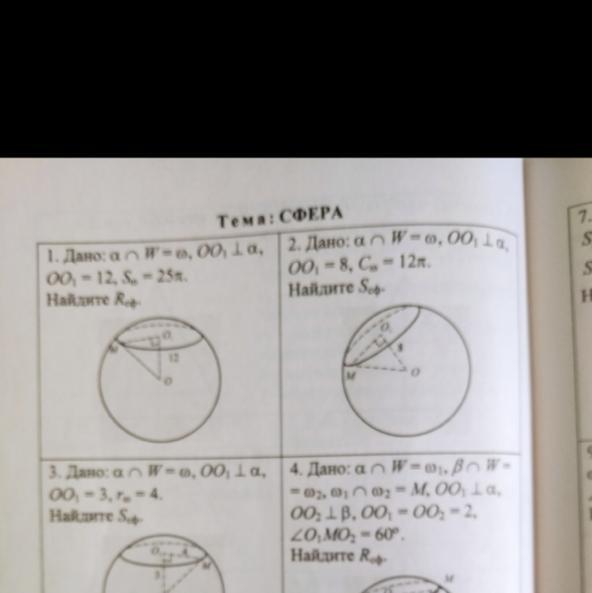 Тема: СФЕРА
1. Дано: α ∩ W = ω, OO₁ ⊥ α,
OO₁ = 12, Sω = 25π.
Найдите Rсф.
M
O₁
12
O
2. Дано: α ∩ W = ω, OO₁ ⊥ α,
OO₁ = 8, Cω = 12π.
Найдите Sсф.
O₁
8
M
O
3. Дано: α ∩ W = ω, OO₁ ⊥ α,
OO₁ = 3, rω = 4.
Найдите Sсф.
O₁
4
M
3
4. Дано: α ∩ W = ω₁, β ∩ W =
= ω₂, ω₁ ∩ ω₂ = M, OO₁ ⊥ α,
OO₂ ⊥ β, OO₁ = OO₂ = 2,
∠O₁MO₂ = 60°.
Найдите Rсф.
M
7.
S
S
Н